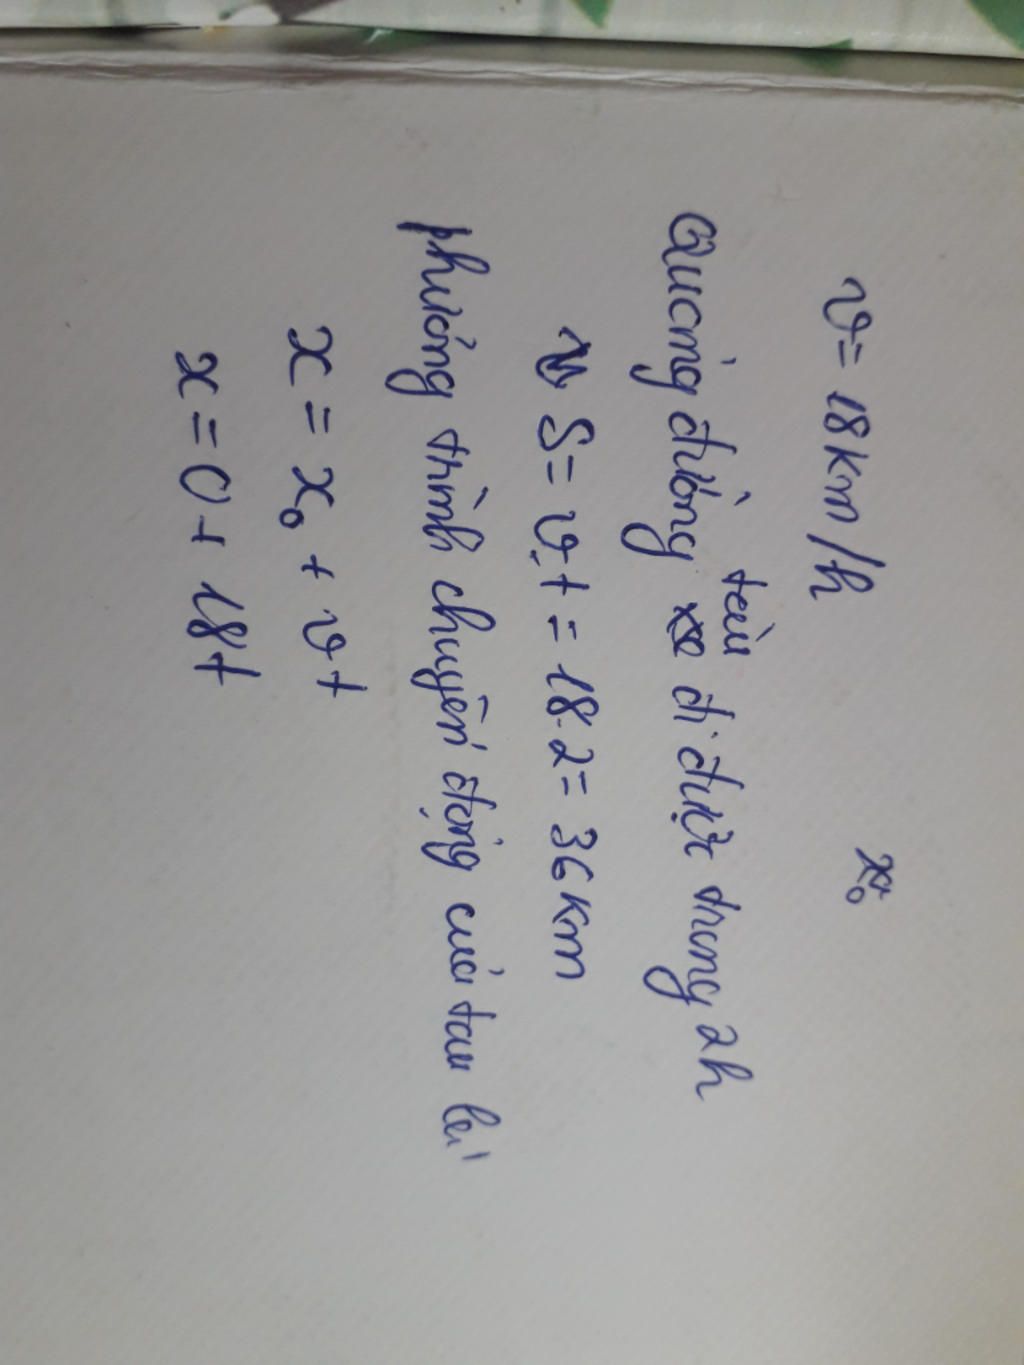 v = 18 km/h x₀
Quãng đường tàu đi được trong 2h
S = v.t = 18.2 = 36 km
phương trình chuyển động của tàu là
x = x₀ + vt
x = 0 + 18t